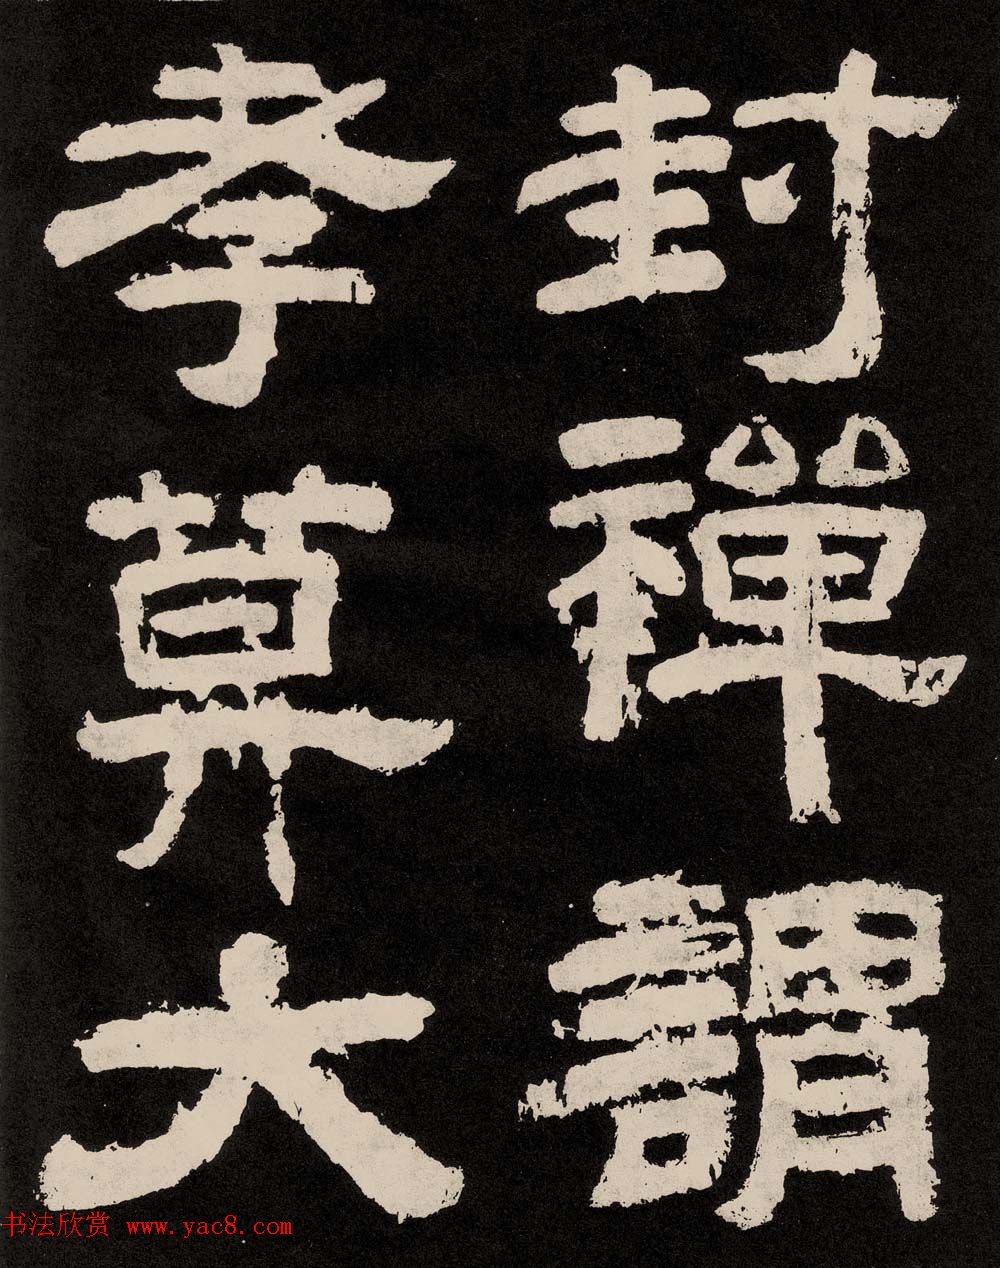 封禪謂
孝莫大
书法欣赏 www.yac8.com